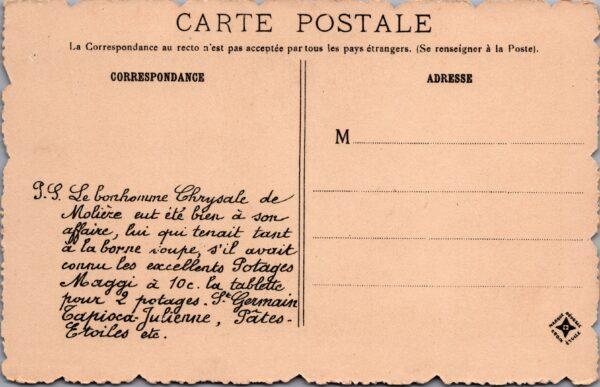 CARTE POSTALE
La Correspondance au recto n'est pas acceptée par tous les pays étrangers. (Se renseigner à la Poste).
CORRESPONDANCE
ADRESSE
M
P.S. Le bonhomme Chrysale de
Molière eut été bien à son
affaire, lui qui tenait tant
à la bonne soupe, s'il avait
connu les excellents Potages
Maggi à 10c. la tablette
pour 2 potages. St Germain
Tapioca-Julienne, Pâtes-
Etoiles etc.
CROIX ETOILE